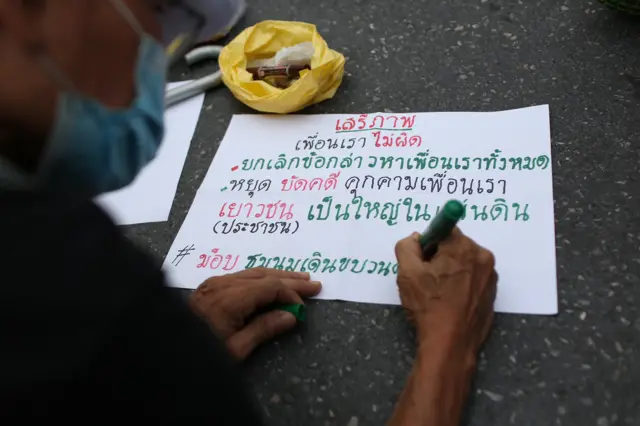 เสรีภาพ
เพื่อนเรา ไม่ผิด
- ยกเลิกข้อกล่าวหาเพื่อนเราทั้งหมด
- หยุด ยัดคดี คุกคามเพื่อนเรา
เยาวชน เป็นใหญ่ใน
(ประชาชน)
# ม็อบ ชุมนุมเดินขบวน